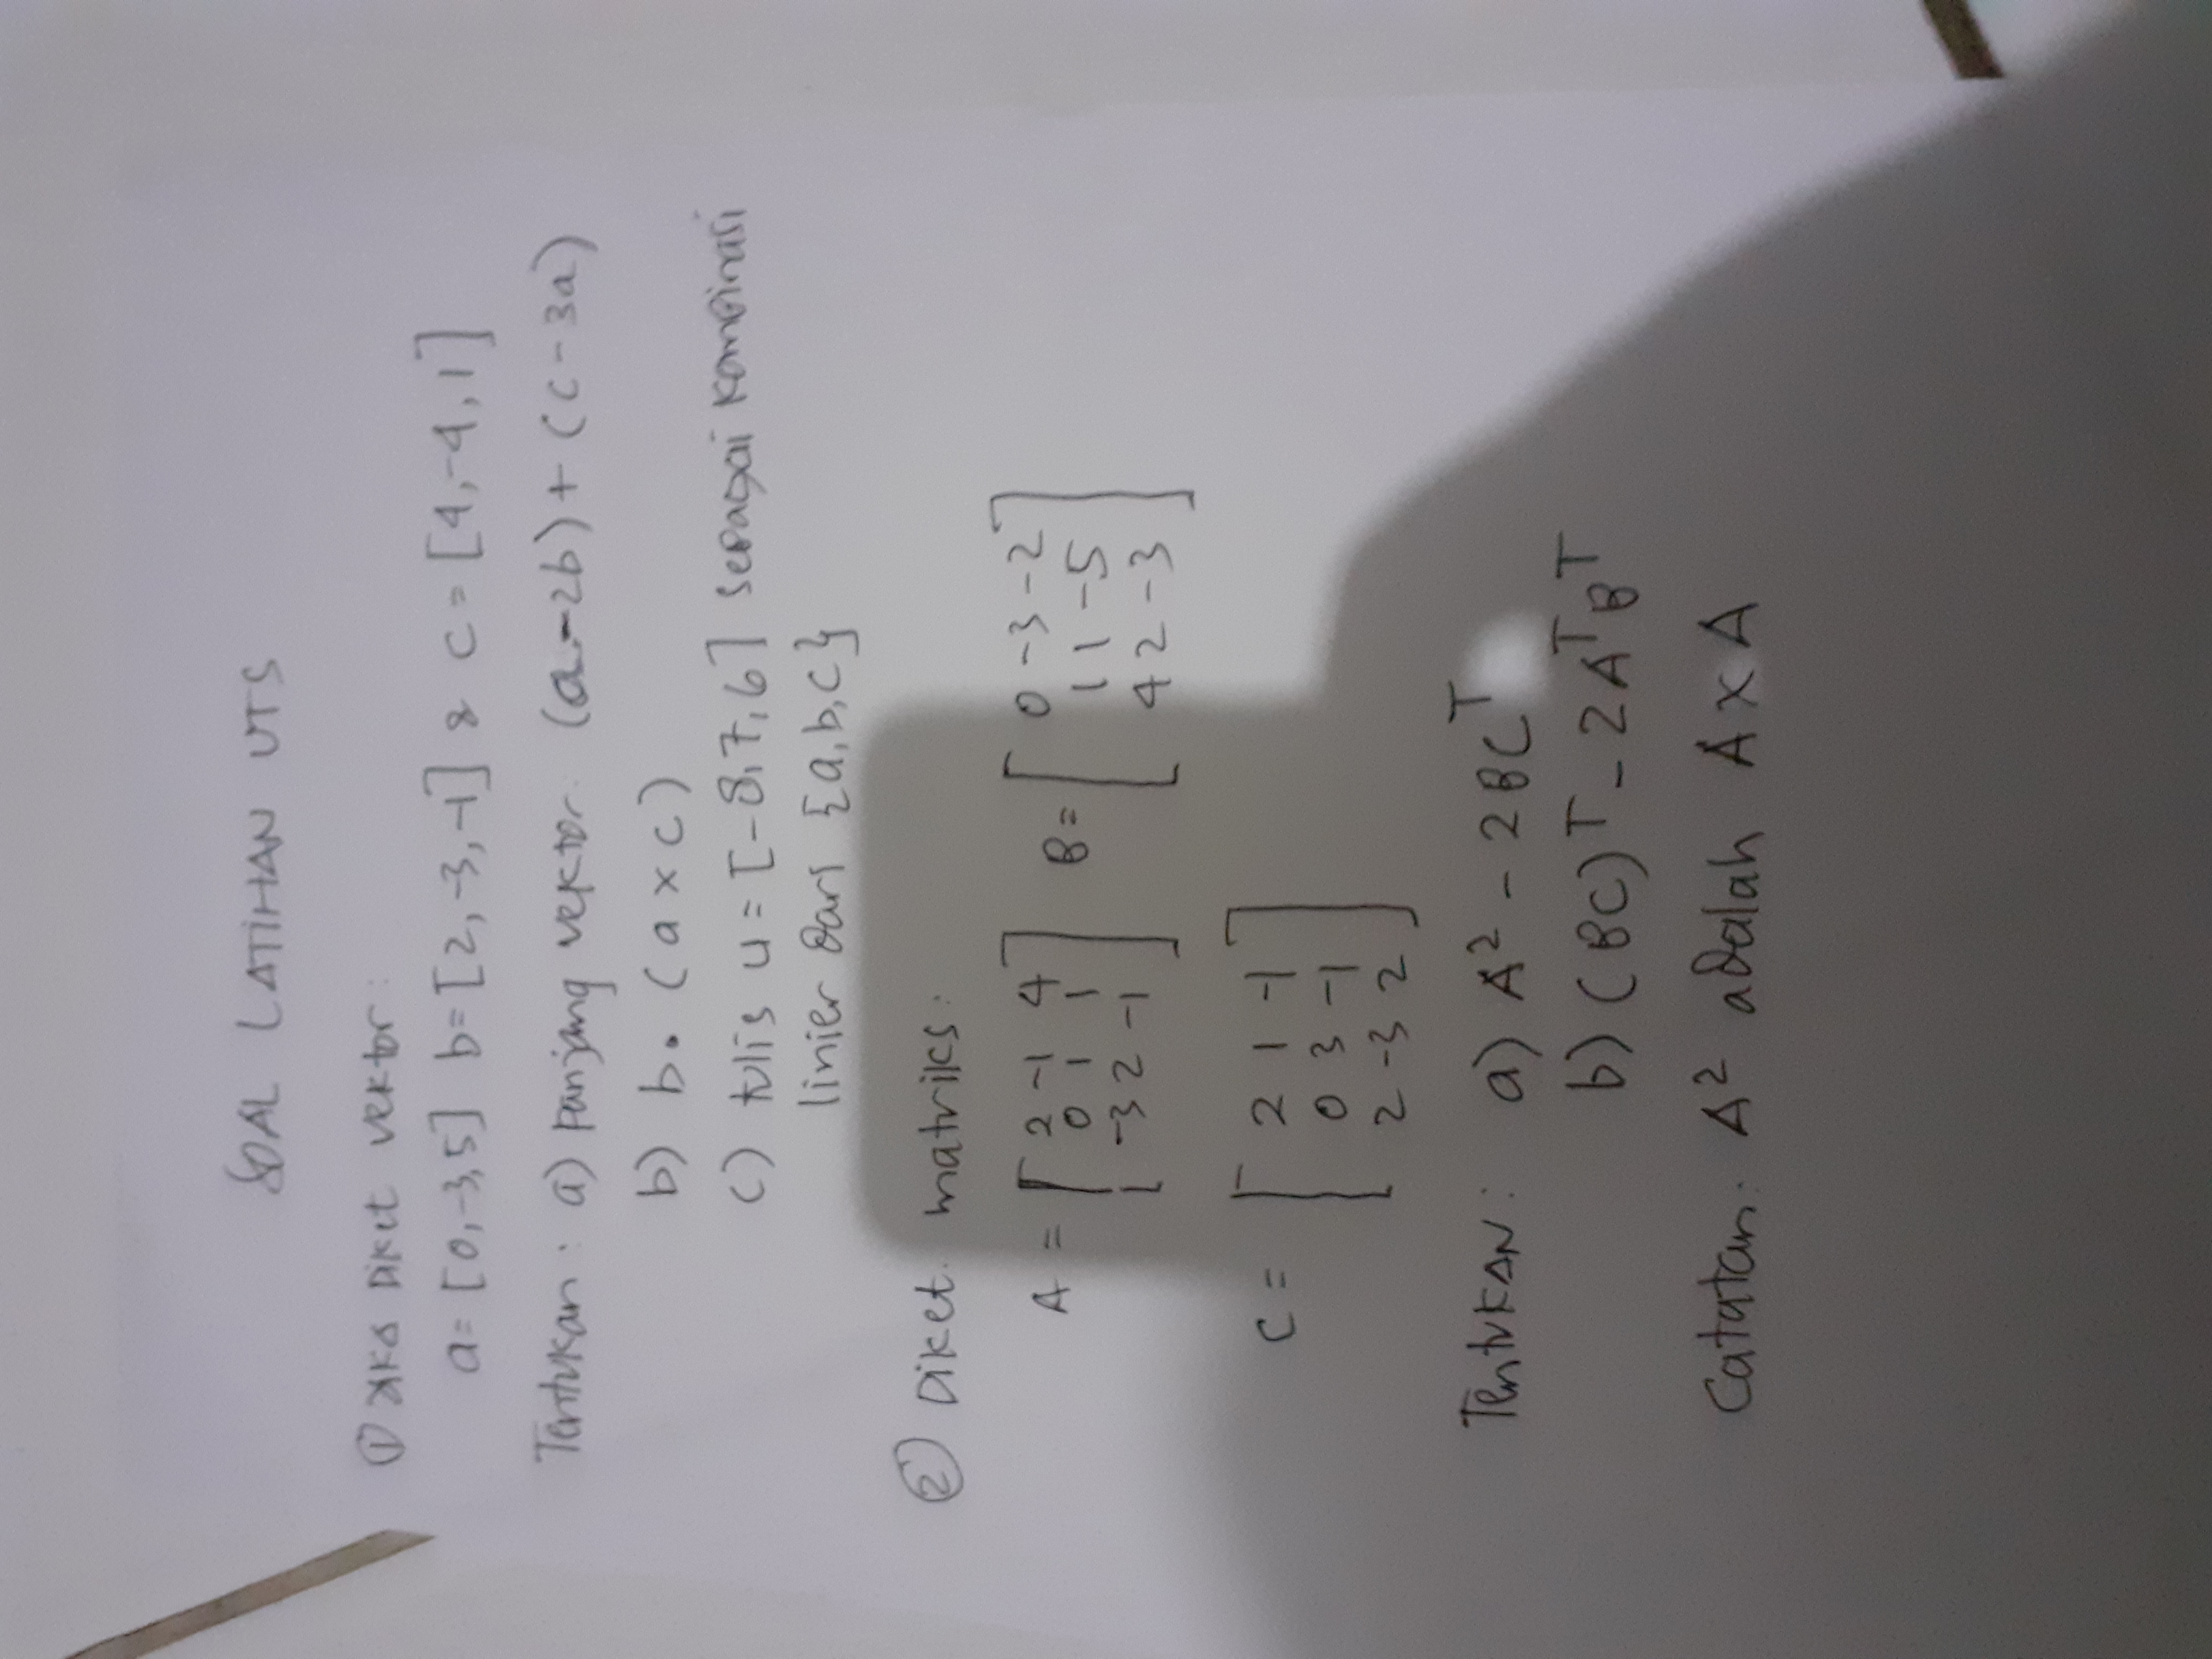 SOAL LATIHAN UTS
① JIKA DIKET VEKTOR:
a = [0, -3, 5] b = [2, -3, -1] & c = [4, -4, 1]
Tentukan: a) panjang vektor (a - 2b) + (c - 3a)
b) b • (a x c)
c) tulis u = [-8, 7, 6] sebagai kombinasi
linier dari {a, b, c}
② Diket. matriks:
A = [ 2 -1 4 ] B = [ 0 -3 -2 ]
0 1 1 1 1 -5
-3 2 -1 4 2 -3
C = [ 2 1 -1 ]
0 3 -1
2 -3 2
TentukAN: a) A² - 2BCᵀ
b) (BC)ᵀ - 2AᵀBᵀ
Catatan: A² adalah A x A